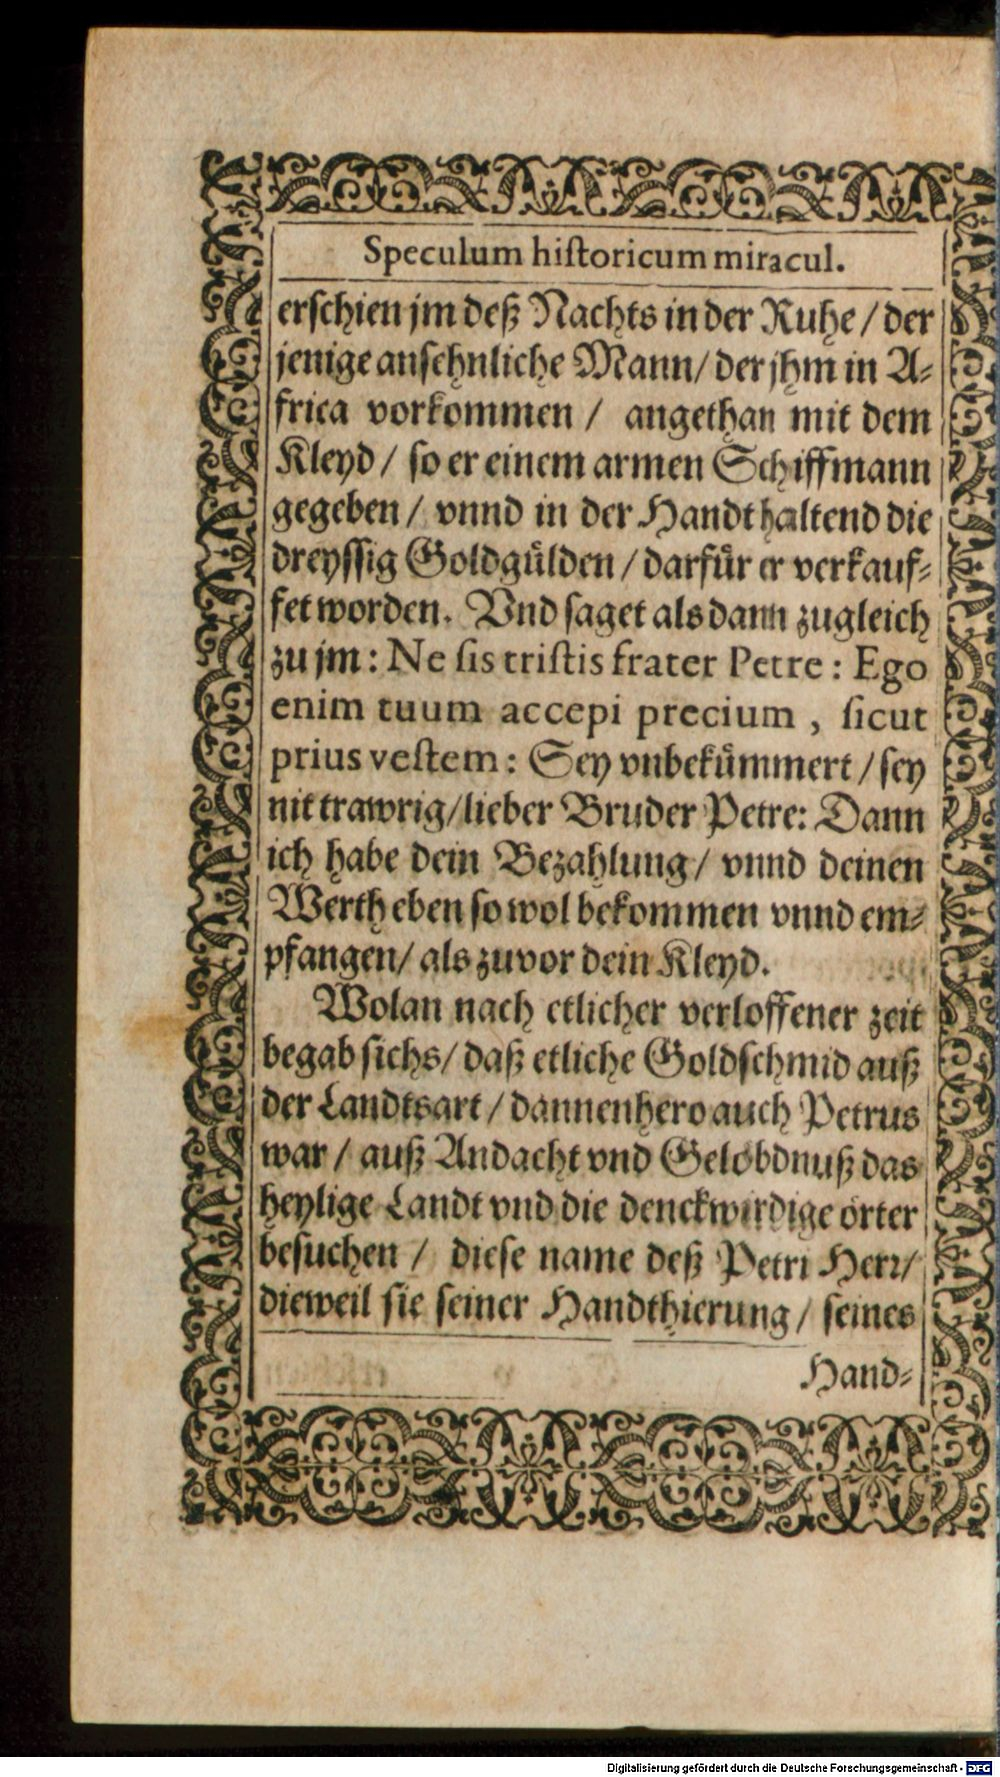 Speculum hiſtoricum miracul.
erſchien jm deß Nachts in der Ruhe / der
jenige anſehnliche Mann / der jhm in A⸗
frica vorkommen / angethan mit dem
Kleyd / ſo er einem armen Schiffmann
gegeben / vnnd in der Handt haltend die
dreyſſig Goldguͤlden / darfuͤr er verkauf⸗
fet worden. Vnd ſaget als dann zugleich
zu jm : Ne ſis triſtis frater Petre : Ego
enim tuum accepi precium , ſicut
prius veſtem : Sey vnbekuͤmmert / ſey
nit trawrig / lieber Bruder Petre: Dann
ich habe dein Bezahlung / vnnd deinen
Werth eben ſo wol bekommen vnnd em⸗
pfangen / als zuvor dein Kleyd.
Wolan nach etlicher verloffener zeit
begab ſichs / daß etliche Goldſchmid auß
der Landtsart / dannenhero auch Petrus
war / auß Andacht vnd Geloͤbdnuß das
heylige Landt vnd die denckwirdige oͤrter
beſuchen / dieſe name deß Petri Herꝛ /
dieweil ſie ſeiner Handthierung / ſeines
Hand⸗
Digitalisierung gefördert durch die Deutsche Forschungsgemeinschaft - DFG